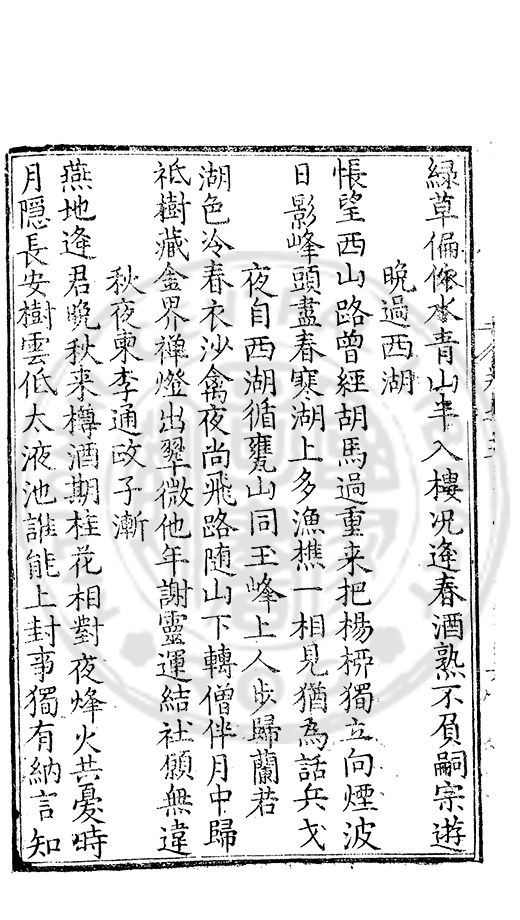 綠草偏依水青山半入樓况逢春酒熟不負嗣宗遊
晩過西湖
悵望西山路曾經胡馬過重来把楊栁獨立向煙波
日影峰頭盡春寒湖上多漁樵一相見猶為話兵戈
夜自西湖循甕山同玉峰上人歩歸蘭若
湖色冷春衣沙禽夜尚飛路随山下轉僧伴月中歸
祗樹藏金界禅燈出翠微他年謝靈運結社願無違
秋夜柬李通政子漸
燕地逄君晩秋来樽酒期桂花相對夜烽火共憂時
月隠長安樹雲低太液池誰能上封事獨有納言知